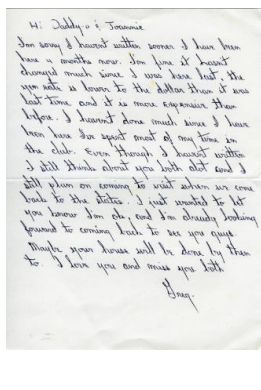 Hi Daddy-o & Joannie
I'm sorry I havn't written sooner I have been
here 4 months now. I'm fine it hasn't
changed much since I was here last, the
yen rate is lower to the dollar than it was
last time, and it is more expensive than
before. I havn't done much since I have
been here I've spent most of my time in
the club. Even though I havn't written
I still think about you both alot and I
still plan on coming to visit when we come
back to the states. I just wanted to let
you know I'm ok, and I'm already looking
forward to coming back to see you guys.
Maybe your house will be done by then
to. I love you and miss you both
Greg.